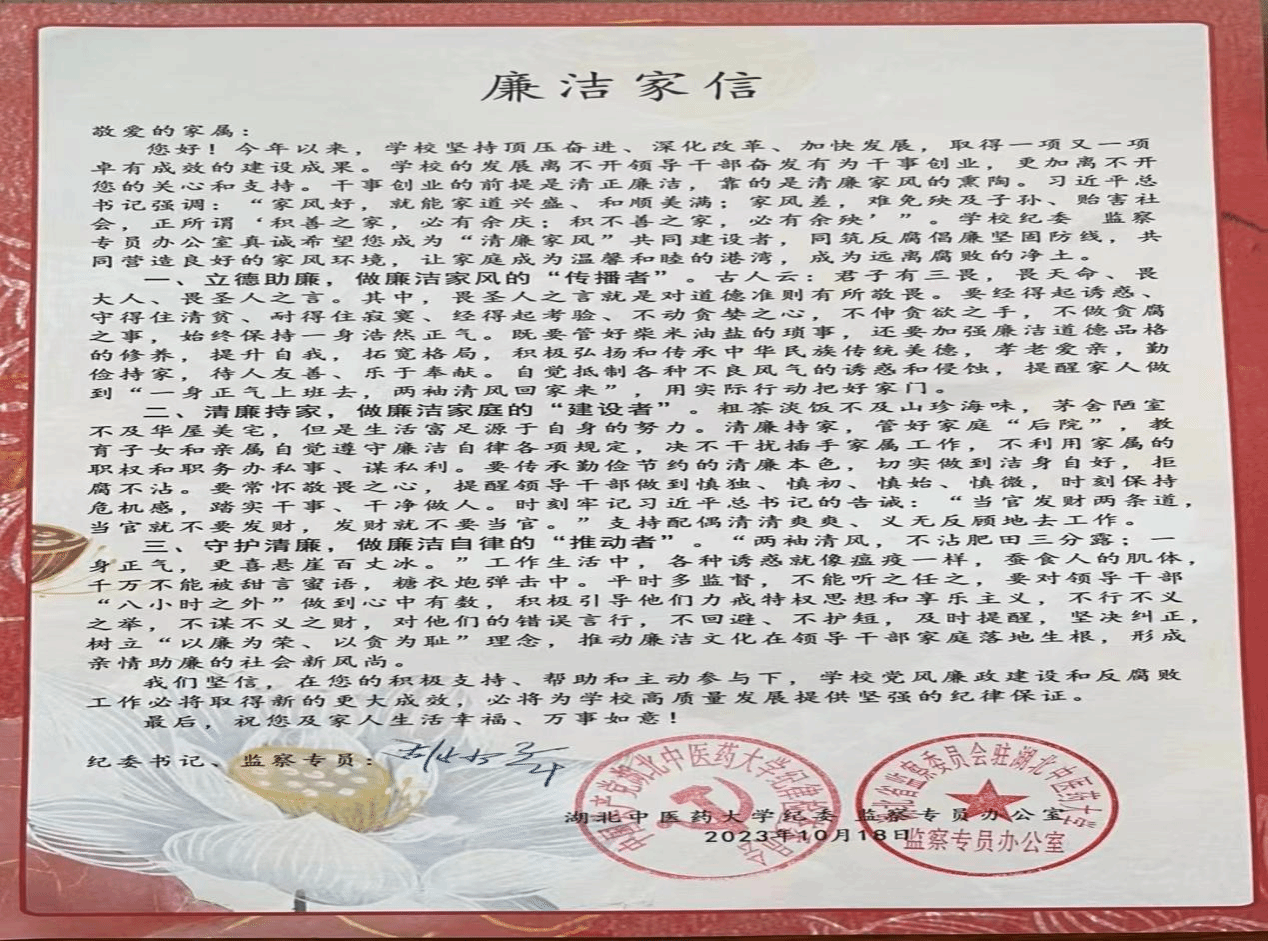 廉洁家信
敬爱的家属：
您好！今年以来，学校坚持顶压奋进、深化改革、加快发展，取得一项又一项
卓有成效的建设成果。学校的发展离不开领导干部奋发有为干事创业，更加离不开
您的关心和支持。干事创业的前提是清正廉洁，靠的是清廉家风的熏陶。习近平总
书记强调：“家风好，就能家道兴盛、和顺美满；家风差，难免殃及子孙、贻害社
会，正所谓‘积善之家，必有余庆；积不善之家，必有余殃’”。学校纪委 监察
专员办公室真诚希望您成为“清廉家风”共同建设者，同筑反腐倡廉坚固防线，共
同营造良好的家风环境，让家庭成为温馨和睦的港湾，成为远离腐败的净土。
一、立德助廉，做廉洁家风的“传播者”。古人云：君子有三畏，畏天命、畏
大人、畏圣人之言。其中，畏圣人之言就是对道德准则有所敬畏。要经得起诱惑、
守得住清贫、耐得住寂寞、经得起考验、不动贪婪之心，不伸贪欲之手，不做贪腐
之事，始终保持一身浩然正气。既要管好柴米油盐的琐事，还要加强廉洁道德品格
的修养，提升自我，拓宽格局，积极弘扬和传承中华民族传统美德，孝老爱亲，勤
俭持家，待人友善、乐于奉献。自觉抵制各种不良风气的诱惑和侵蚀，提醒家人做
到“一身正气上班去，两袖清风回家来”，用实际行动把好家门。
二、清廉持家，做廉洁家庭的“建设者”。粗茶淡饭不及山珍海味，茅舍陋室
不及华屋美宅，但是生活富足源于自身的努力。清廉持家，管好家庭“后院”，教
育子女和亲属自觉遵守廉洁自律各项规定，决不干扰插手家属工作，不利用家属的
职权和职务办私事、谋私利。要传承勤俭节约的清廉本色，切实做到洁身自好，拒
腐不沾。要常怀敬畏之心，提醒领导干部做到慎独、慎初、慎始、慎微，时刻保持
危机感，踏实干事、干净做人。时刻牢记习近平总书记的告诫：“当官发财两条道，
当官就不要发财，发财就不要当官。”支持配偶清清爽爽、义无反顾地去工作。
三、守护清廉，做廉洁自律的“推动者”。“两袖清风，不沾肥田三分露；一
身正气，更喜悬崖百丈冰。”工作生活中，各种诱惑就像瘟疫一样，蚕食人的肌体，
千万不能被甜言蜜语，糖衣炮弹击中。平时多监督，不能听之任之，要对领导干部
“八小时之外”做到心中有数，积极引导他们力戒特权思想和享乐主义，不行不义
之举，不谋不义之财，对他们的错误言行，不回避、不护短，及时提醒，坚决纠正，
树立“以廉为荣、以贪为耻”理念，推动廉洁文化在领导干部家庭落地生根，形成
亲情助廉的社会新风尚。
我们坚信，在您的积极支持、帮助和主动参与下，学校党风廉政建设和反腐败
工作必将取得新的更大成效，必将为学校高质量发展提供坚强的纪律保证。
最后，祝您及家人生活幸福、万事如意！
纪委书记、监察专员：
中国共产党湖北中医药大学纪律检查委员会
湖北省监察委员会驻湖北中医药大学
监察专员办公室
湖北中医药大学纪委 监察专员办公室
2023年10月18日